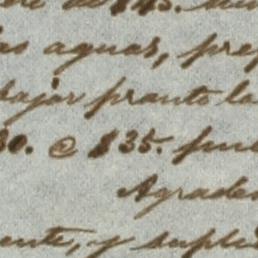 de $145.
las aguas, pre
bajar pronto la
30. @ $35. pue
Agrade
ente, y supli